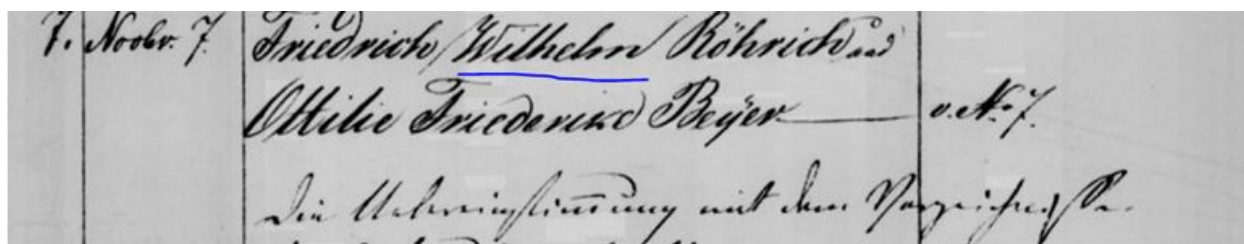 7. Novbr. 7. Friedrich Wilhelm Röhrich und
Ottilie Friederike Beyer v. No 7.
Die Uebereinstimmung mit dem Verzeichnisse